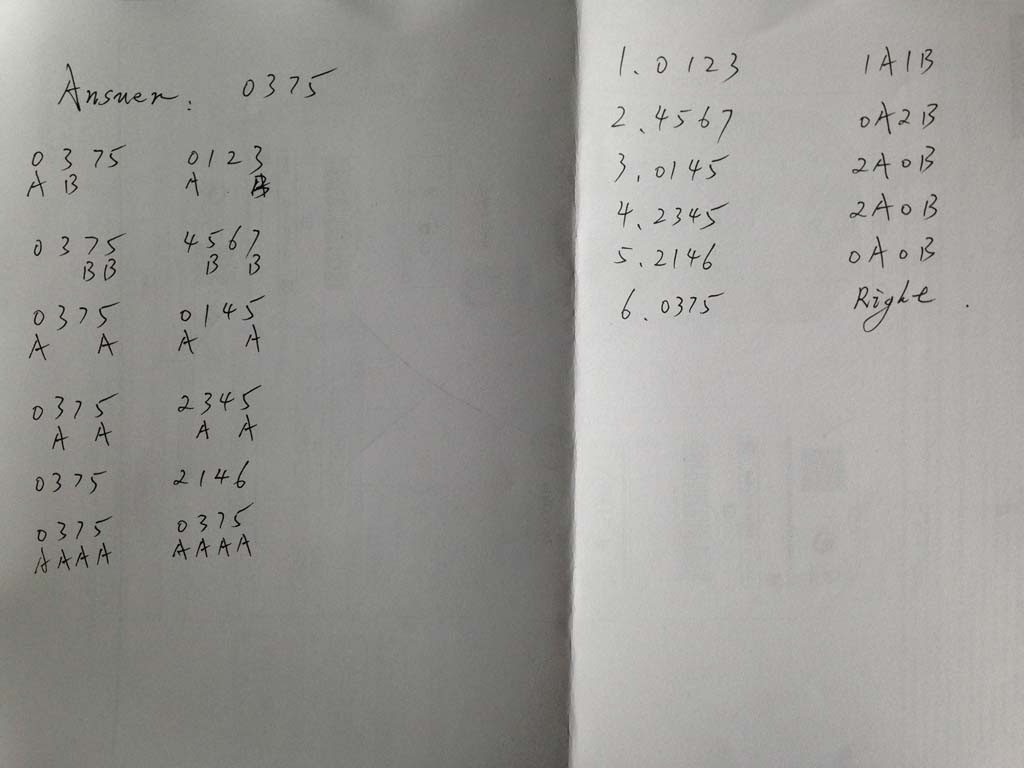 Answer: 0375
0375 0123
A B A B
0375 4567
BB B B
0375 0145
A A A A
0375 2345
A A A A
0375 2146
0375 0375
AAAA AAAA
1. 0123 1A1B
2. 4567 0A2B
3. 0145 2A0B
4. 2345 2A0B
5. 2146 0A0B
6. 0375 Right.